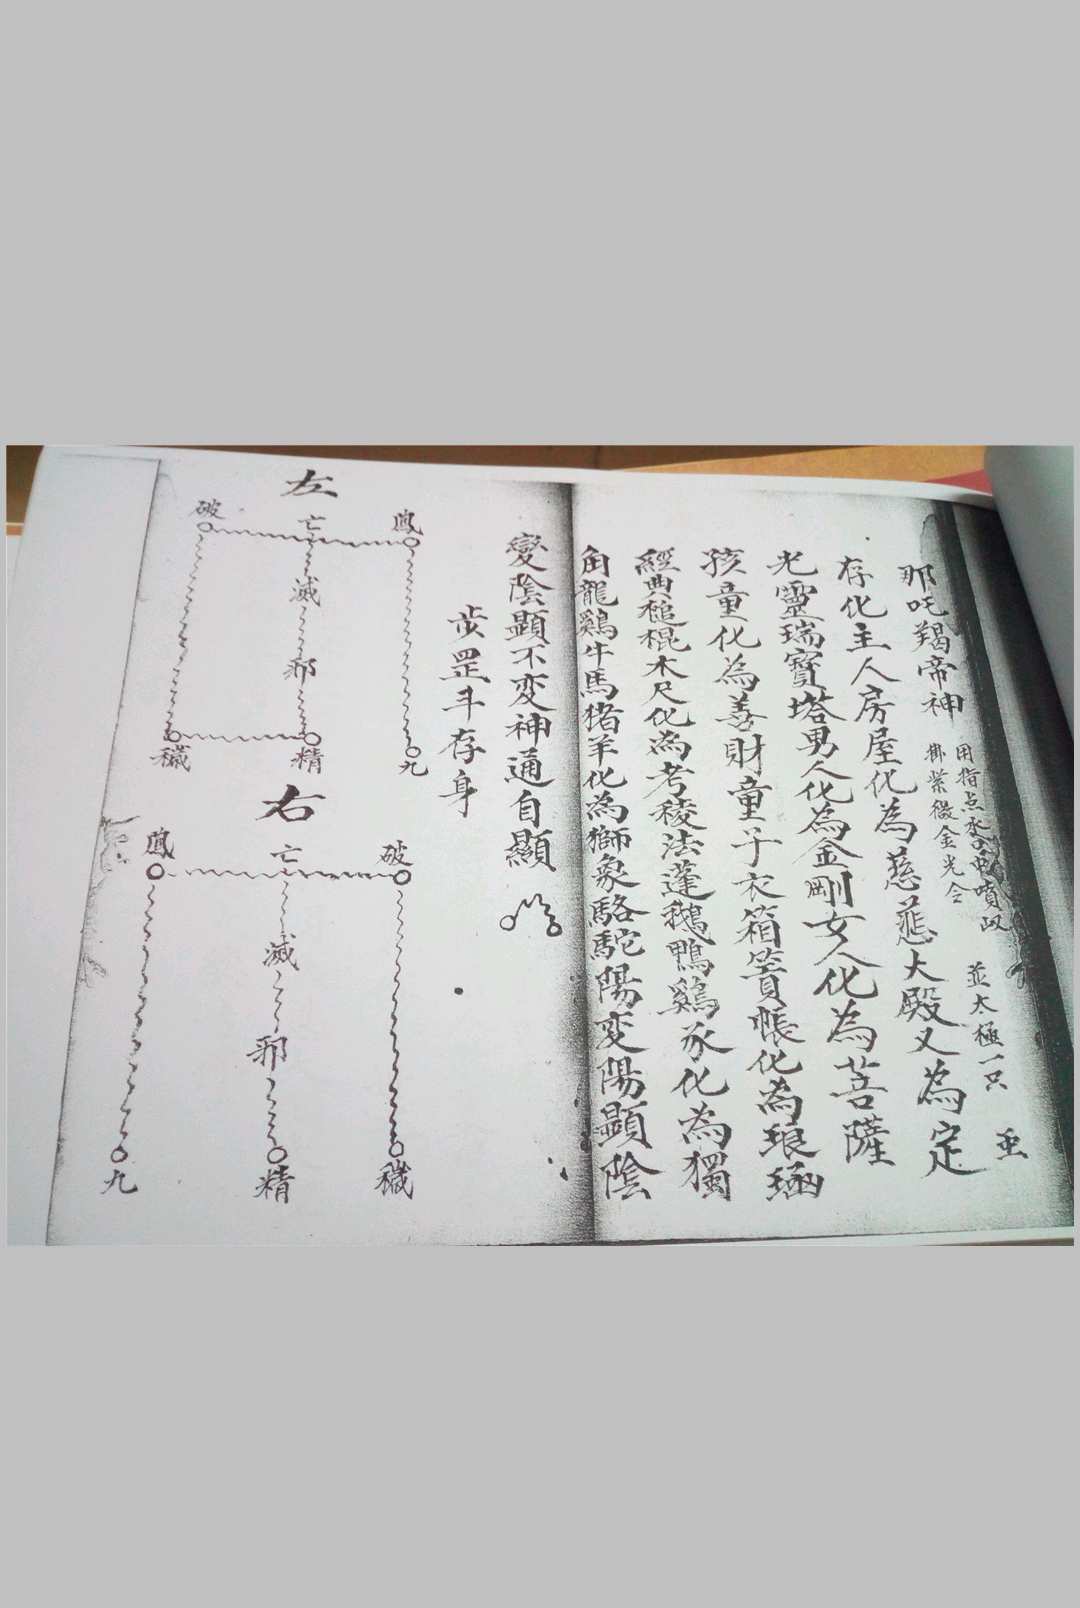 那吒羯帝神
用指点水
噴
御紫微金光令
並太極一只
存化主人房屋化為慈悲大殿又為定
光靈瑞寶塔男人化為金剛女人化為菩薩
孩童化為善財童子衣箱篢帳化為琅函
經典槌棍木尺化為考稜法蓬鵝鴨鷄豕化為獨
角龍鷄牛馬猪羊化為獅象駱駝陽変陽顯陰
變陰顯不変神通自顯
步罡斗存身
左
鳳 亡 破
滅
邪
九 精 穢
右
破 亡 鳳
滅
邪
穢 精 九